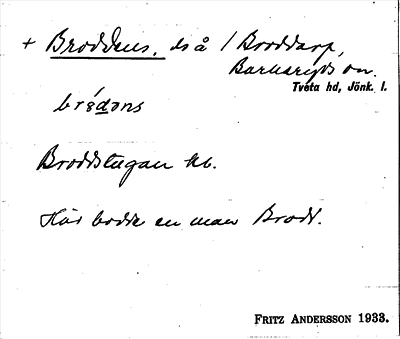 + Broddens, ds å / Broddarp,
Barkeryds sn.
Tveta hd, Jönk. l.
brɷ́dəns
Broddstugan kb.
Här bodde en man Brodd.
FRITZ ANDERSSON 1933.